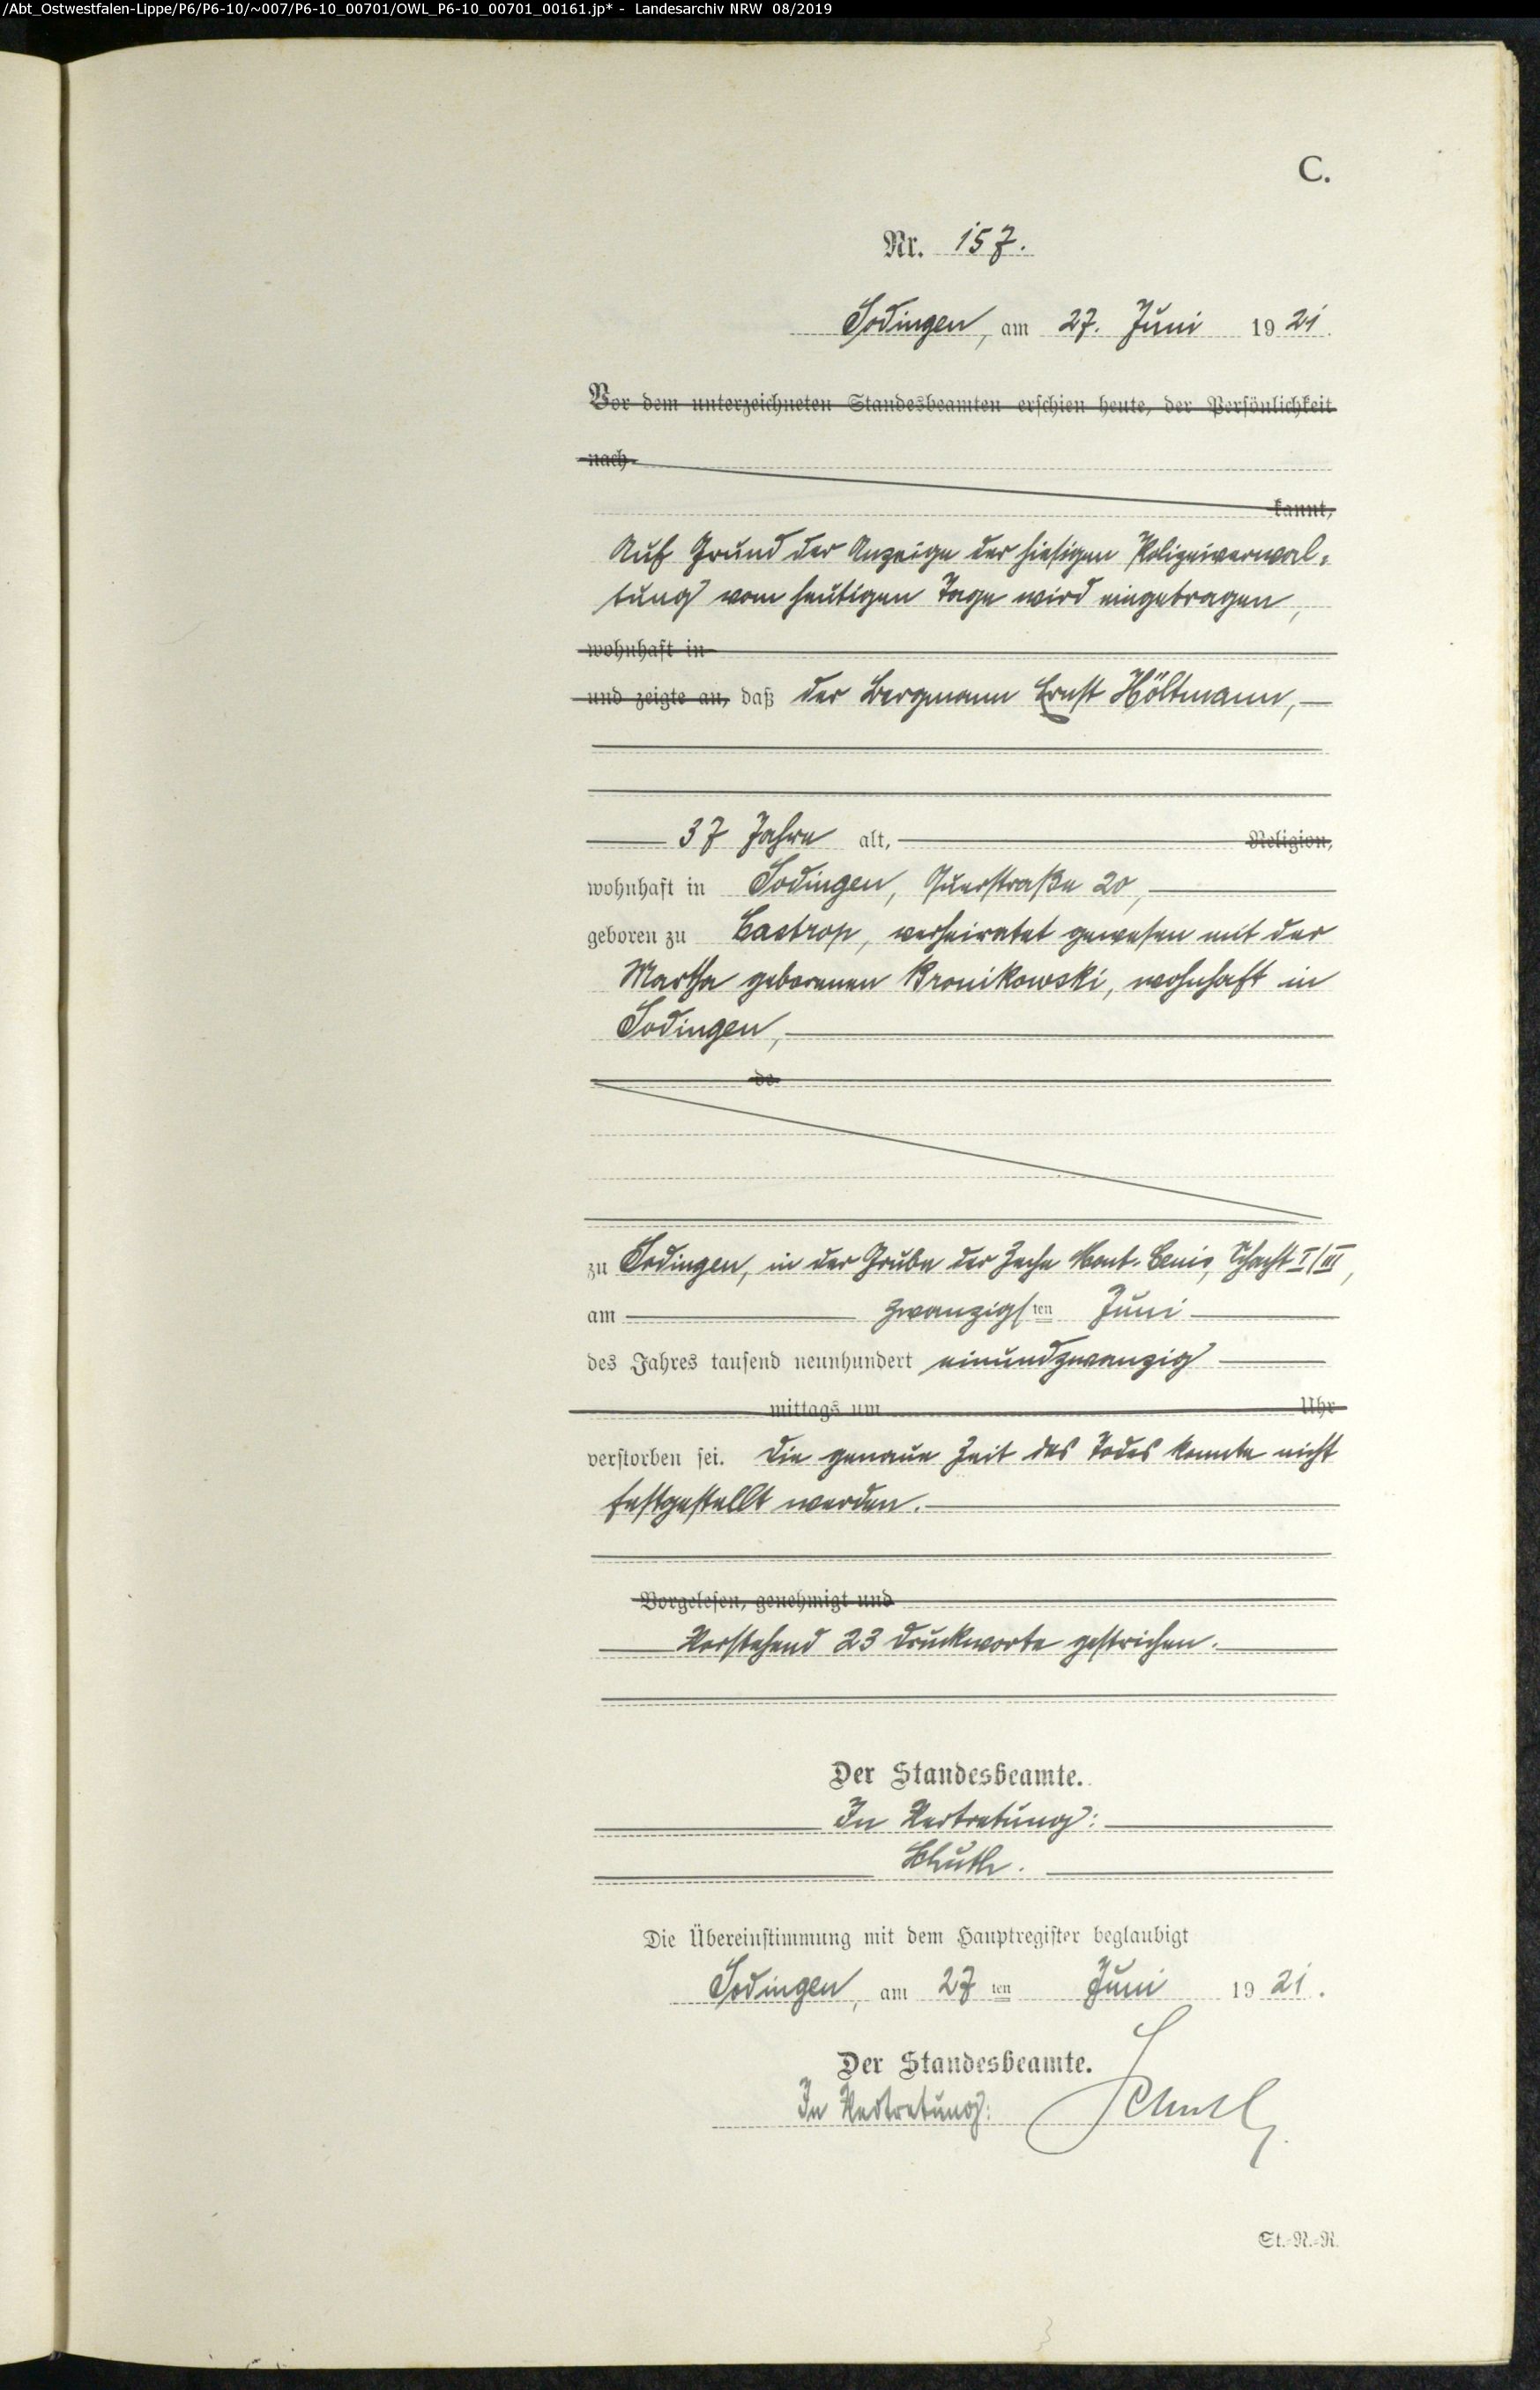 /Abt_Ostwestfalen-Lippe/P6/P6-10/~007/P6-10_00701/OWL_P6-10_00701_00161.jp* - Landesarchiv NRW 08/2019
C.
Nr. 157.
Sodingen, am 27. Juni 1921.
Vor dem unterzeichneten Standesbeamten erschien heute, der Persönlichkeit
nach
kannt,
Auf Grund der Anzeige der hiesigen Polizeiverwal-
tung vom heutigen Tage wird eingetragen,
wohnhaft in
und zeigte an, daß der Bergmann Ernst Höltmann,
37 Jahre alt, Religion,
wohnhaft in Sodingen, Querstraße 20,
geboren zu Castrop, verheiratet gewesen mit der
Martha geborenen Bronikowski, wohnhaft in
Sodingen,
de
zu Sodingen, in der Grube der Zeche Mont-Cenis, Schacht I/III,
am zwanzigsten Juni
des Jahres tausend neunhundert einundzwanzig
mittags um Uhr
verstorben sei. Die genaue Zeit des Todes konnte nicht
festgestellt werden.
Vorgelesen, genehmigt und
Vorstehend 23 Druckworte gestrichen.
Der Standesbeamte.
In Vertretung:
Die Übereinstimmung mit dem Hauptregister beglaubigt
Sodingen, am 27ten Juni 1921.
Der Standesbeamte.
In Vertretung:
St.-N.-R.